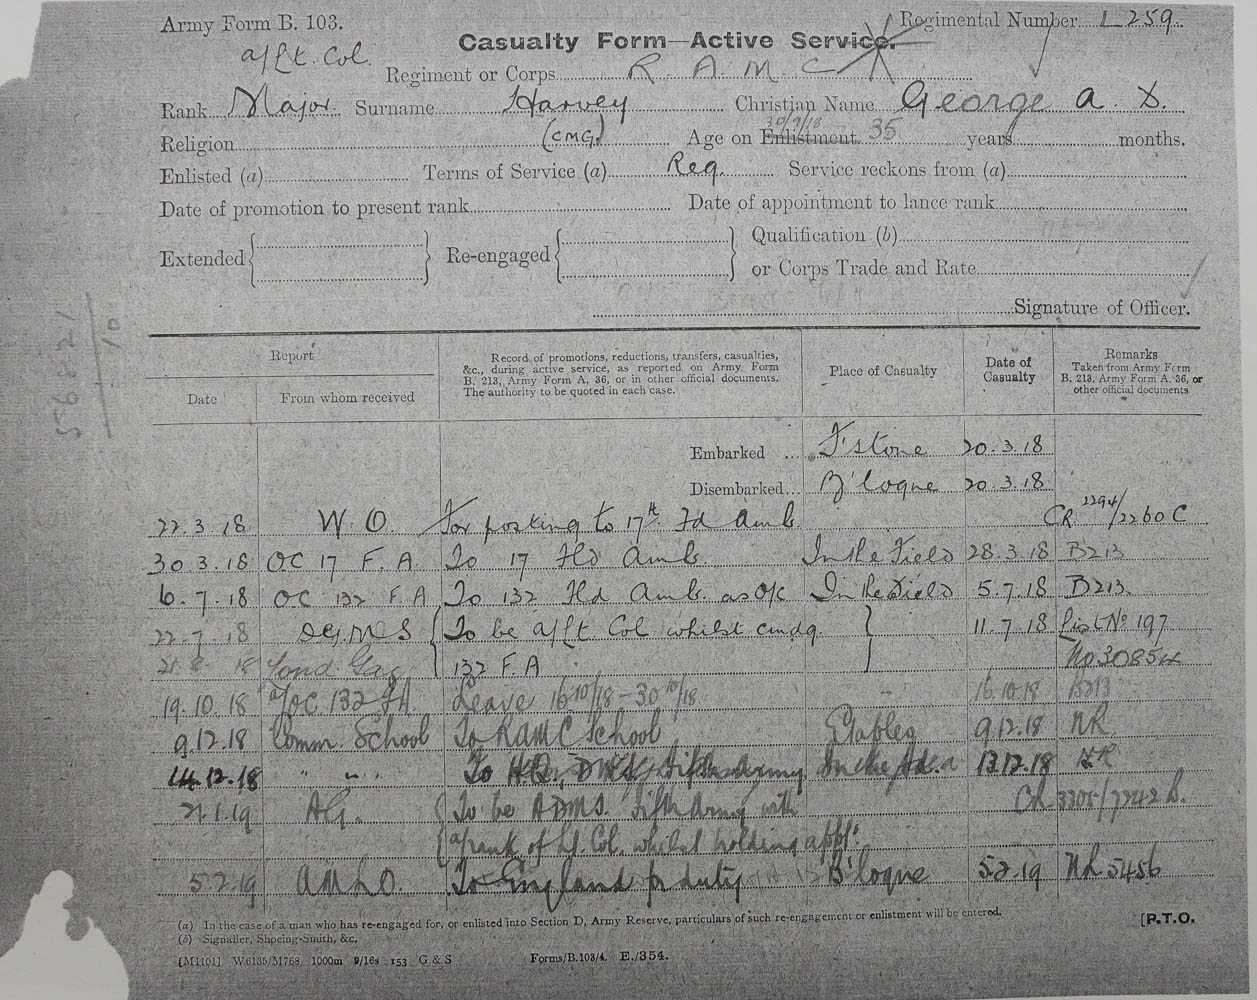 Army Form B. 103.
Regimental Number L 259.
Casualty Form—Active Service.
a/Lt. Col.
Regiment or Corps R. A. M. C
Rank Major. Surname Harvey Christian Name George A. D.
(CMG) 30/9/18
Religion Age on Enlistment 35 years months.
Enlisted (a) Terms of Service (a) Reg. Service reckons from (a)
Date of promotion to present rank Date of appointment to lance rank
Extended Re-engaged Qualification (b)
or Corps Trade and Rate
Signature of Officer.
Report
Date From whom received
Record of promotions, reductions, transfers, casualties,
&c., during active service, as reported on Army Form
B. 213, Army Form A. 36, or in other official documents.
The authority to be quoted in each case.
Place of Casualty
Date of
Casualty
Remarks
Taken from Army Form
B. 213, Army Form A. 36, or
other official documents
Embarked ... F'stone 20.3.18
Disembarked... B'logne 20.3.18
22.3.18 W.O. For posting to 17th Fd Amb. CR 2294/2260C
30.3.18 OC 17 F.A. To 17 Fld Amb. In the Field 28.3.18 B213
6.7.18 OC 132 F.A To 132 Fld Amb. as O/C In the Field 5.7.18 B213.
22.7.18 DGMS To be a/Lt. Col whilst cmdg 11.7.18 List No 197
21.8.18 Lond Gaz 132 F.A No 30854
19.10.18 a/OC 132 FA. Leave 16/10/18-30/10/18 " 16.10.18 B213
9.12.18 Comm. School To RAMC School Etaples 9.12.18 NR
14.12.18 " " To HQ, Fifth Army In the Field 13.12.18 NR
21.1.19 AG. To be ADMS. Fifth Army with CR 3305/7242 B.
a/rank of Lt. Col. whilst holding appt.
5.2.19 AMLO. To England for duty B'logne 5.2.19 NR 5456
(a) In the case of a man who has re-engaged for, or enlisted into Section D, Army Reserve, particulars of such re-engagement or enlistment will be entered.
(b) Signaller, Shoeing-Smith, &c.
[P.T.O.
[M1101] W6135/M768 1000m 9/16s 153 G & S Forms/B.103/4. E./354.